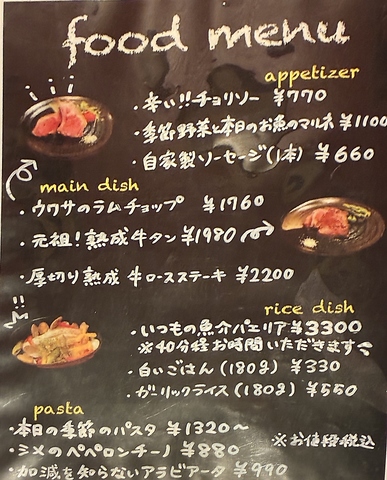 food menu
appetizer
・辛い!!チョリソー ¥770
・季節野菜と本日のお魚のマルネ ¥1100
・自家製ソーセージ(1本) ¥660
main dish
・ウワサのラムチョップ ¥1760
・元祖!熟成牛タン ¥1980
・厚切り熟成 牛ロースステーキ ¥2200
rice dish
・いつもの魚介パエリア ¥3300
※40分程お時間いただきます
・白いごはん(180g) ¥330
・ガーリックライス(180g) ¥550
pasta
・本日の季節のパスタ ¥1320〜
・シメのペペロンチーノ ¥880
・加減を知らないアラビアータ ¥990
※お値段税込